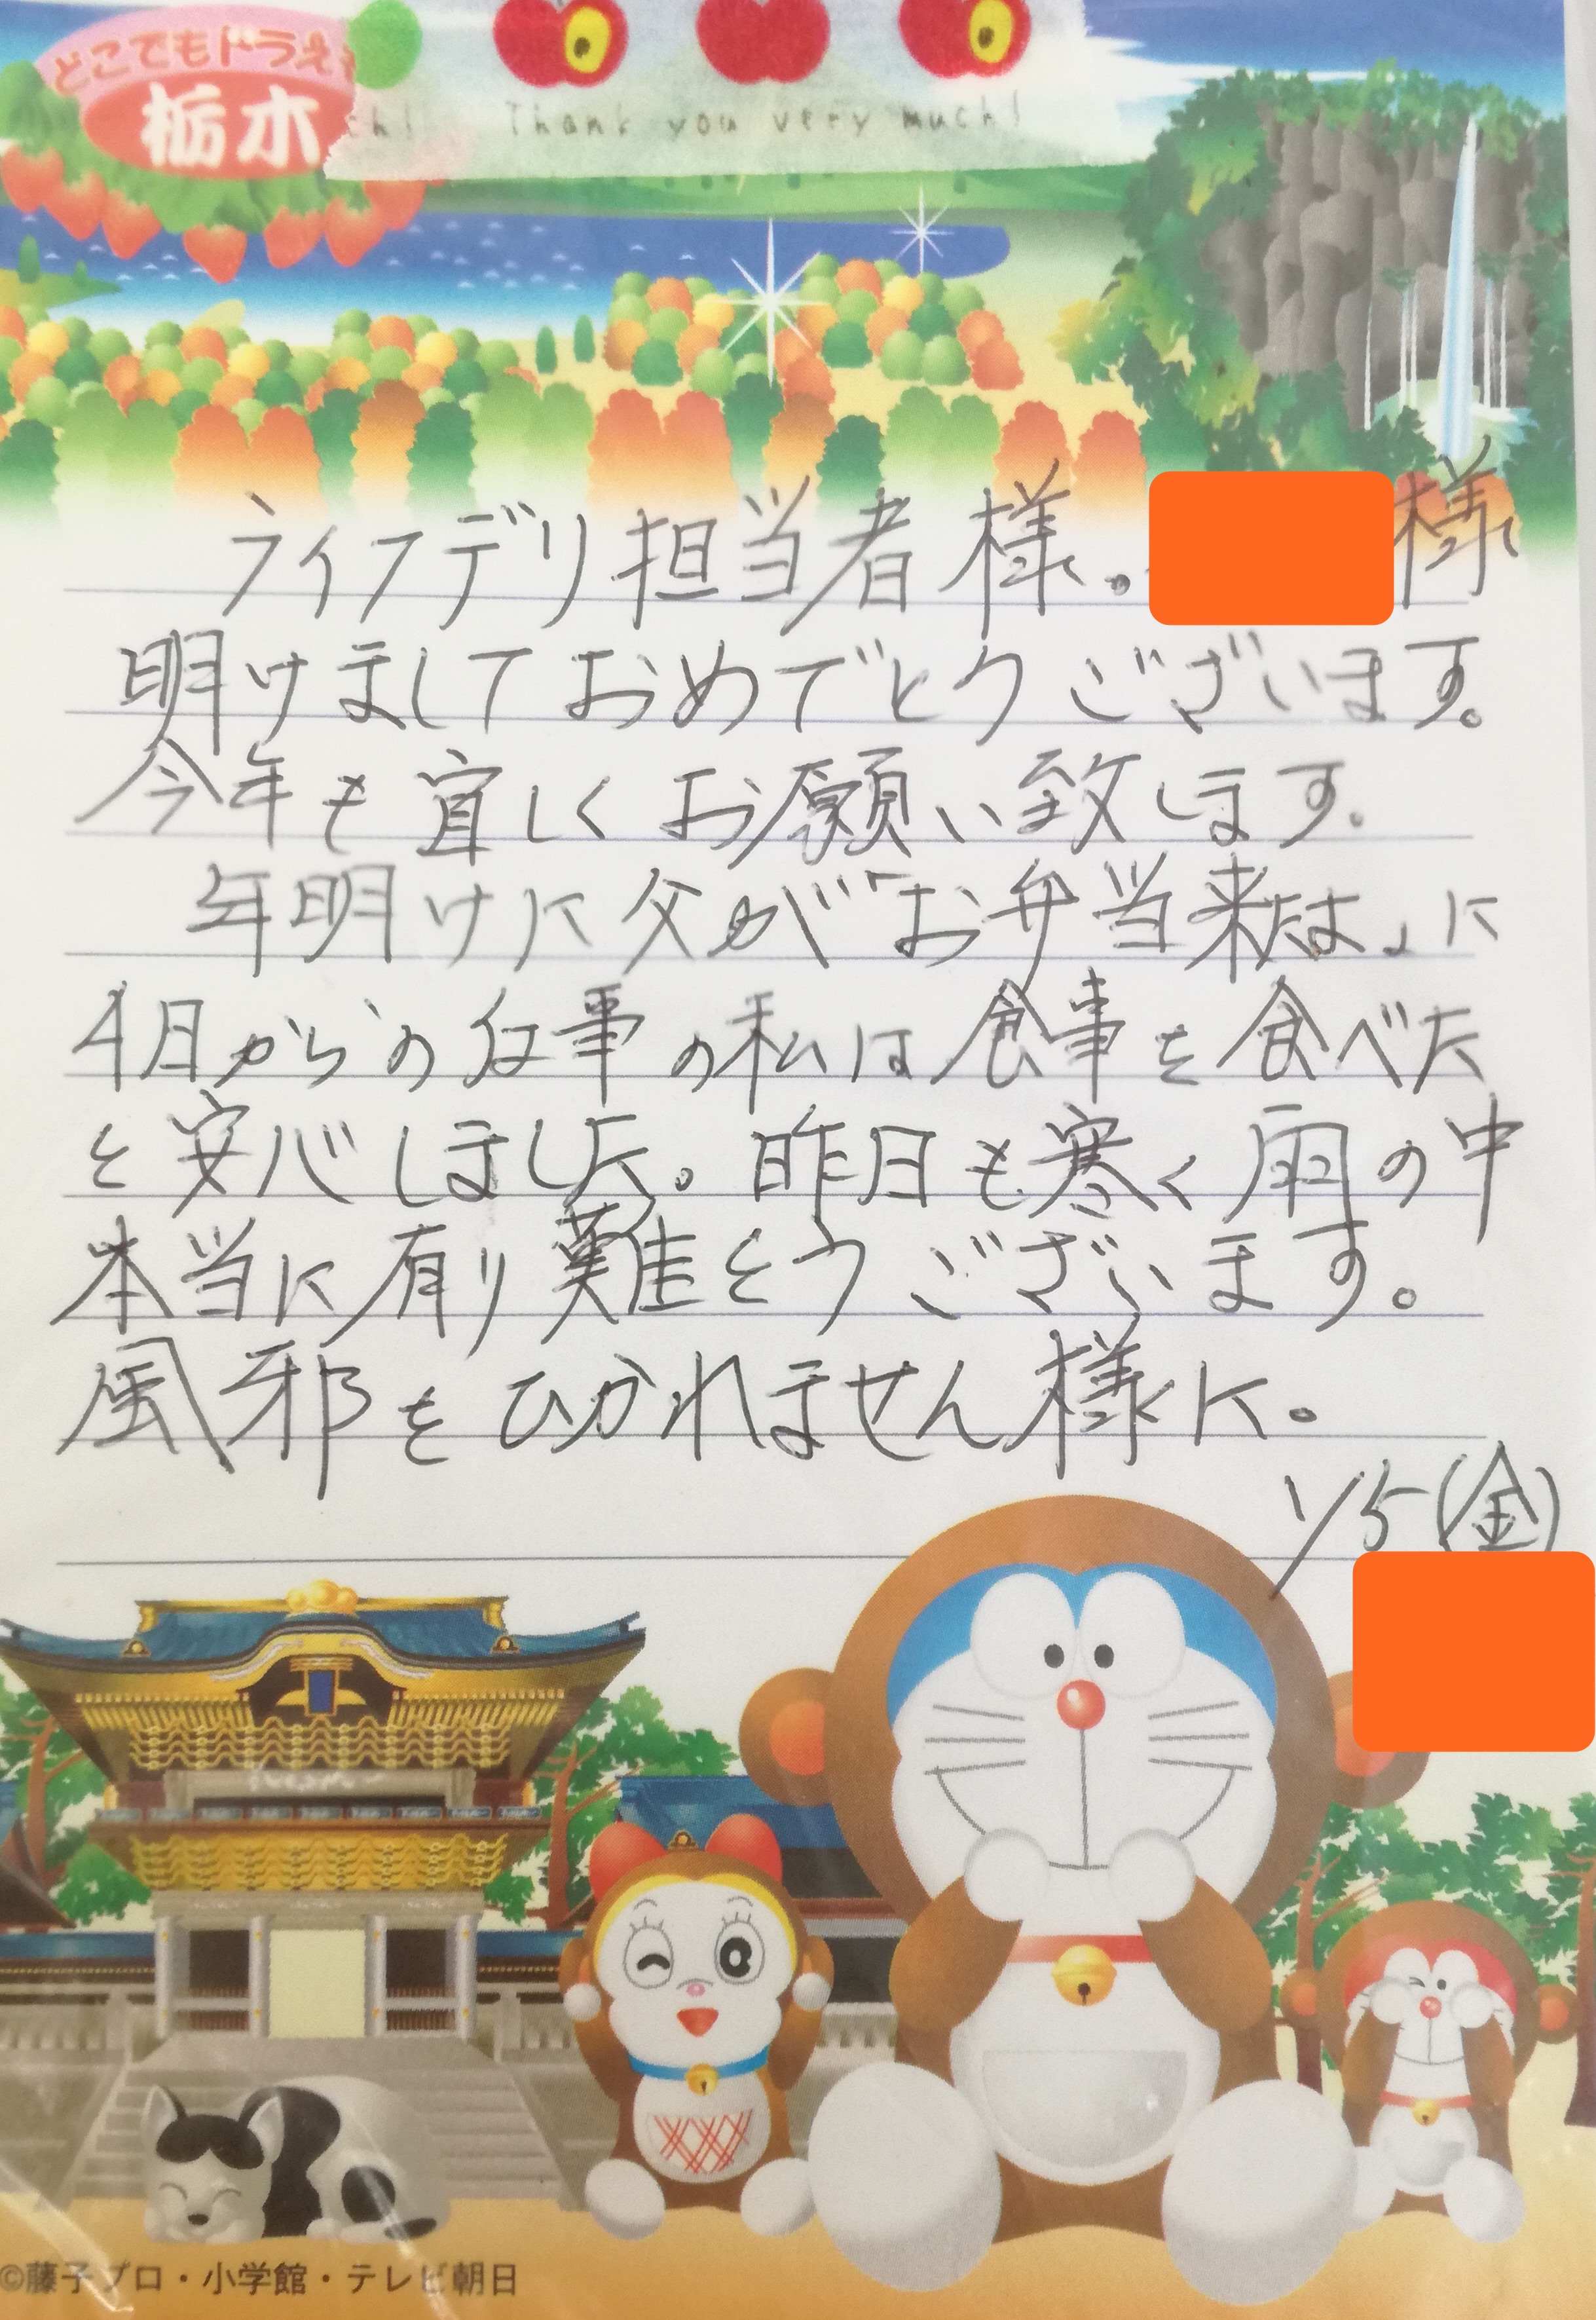 どこでもドラえ
栃木
ch! Thank you very much!
ライフデリ担当者様。 様
明けましておめでとうございます。
今年も宜しくお願い致します。
年明けに父が「お弁当来たは」に
4日からの仕事の私は食事を食べた
と安心しました。昨日も寒く雨の中
本当に有り難とうございます。
風邪をひかれません様に。
1/5(金)
©藤子プロ・小学館・テレビ朝日